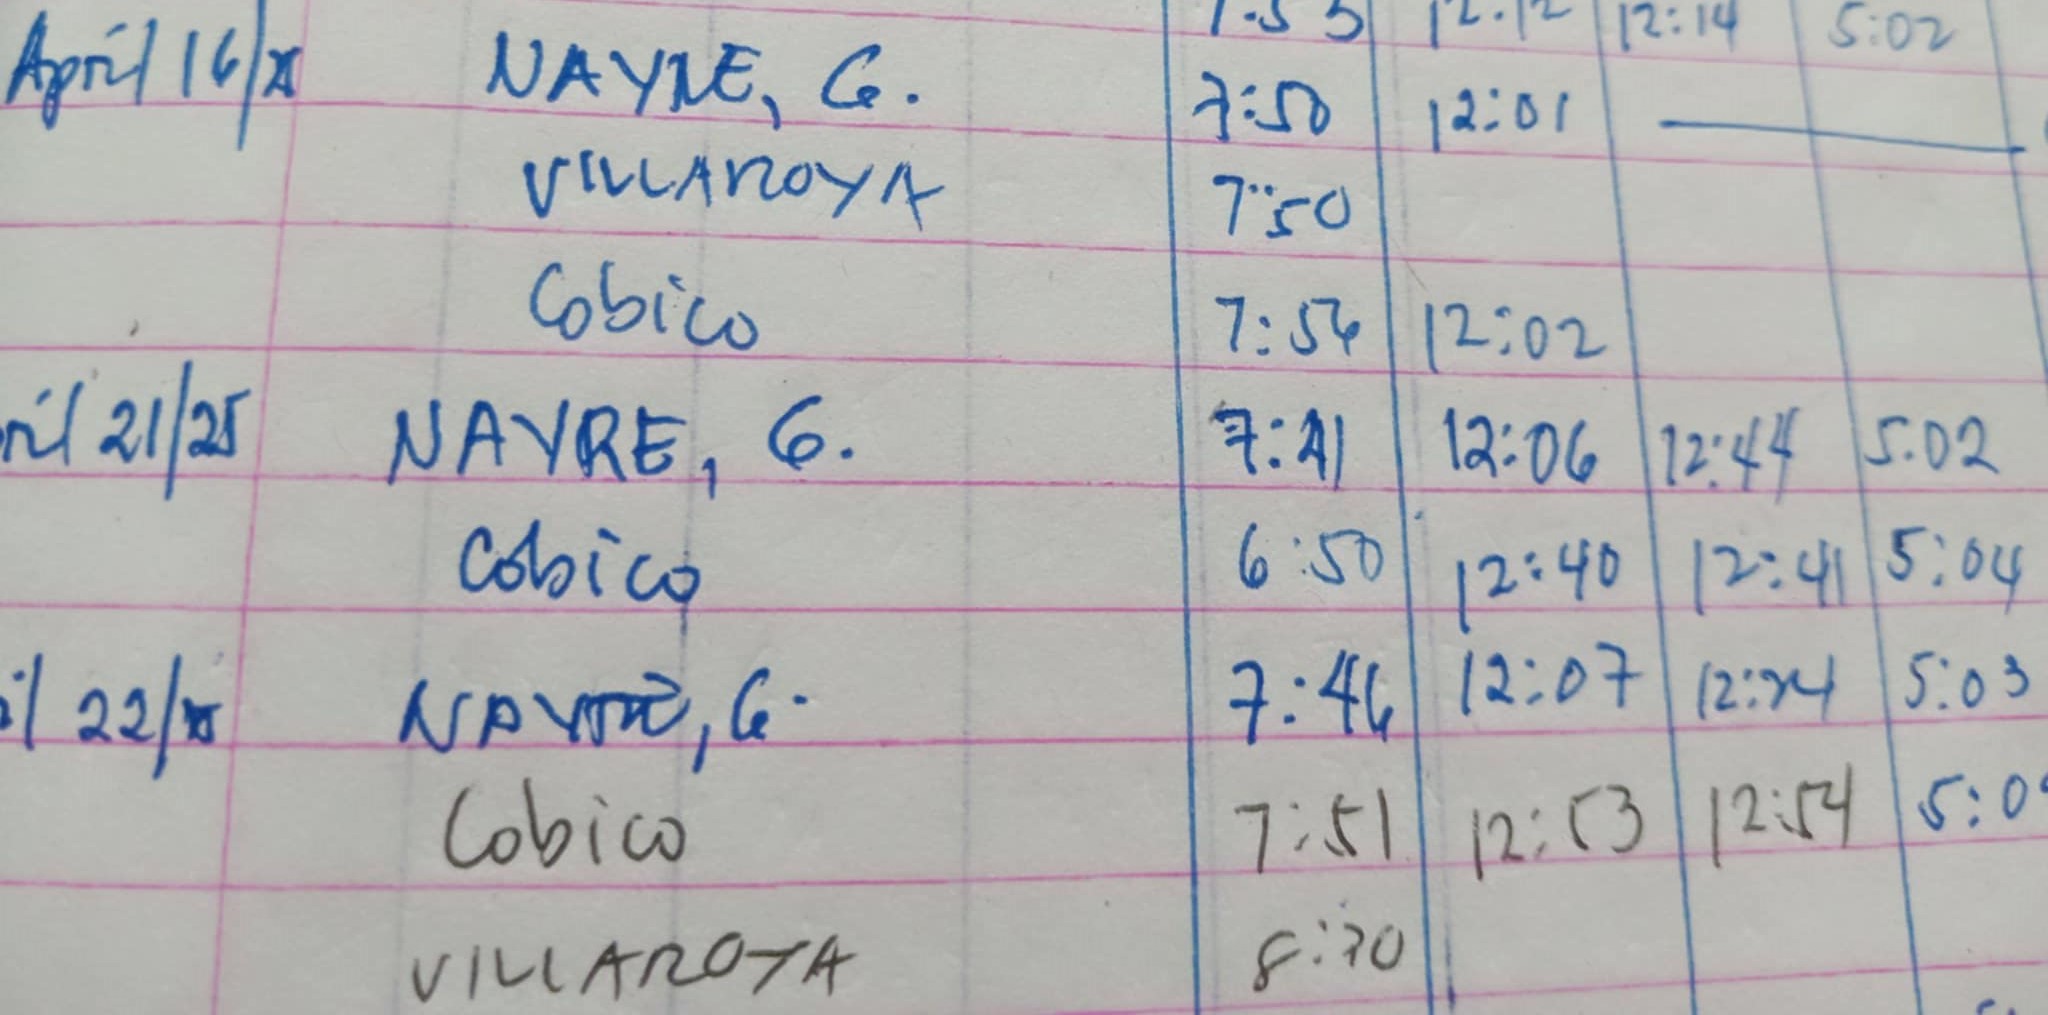 12:14 5:02
April 16/25 NAYRE, G. 7:50 12:01
VILLAROYA 7:50
Cobico 7:54 12:02
ril 21/25 NAYRE, G. 7:41 12:06 12:44 5:02
Cobico 6:50 12:40 12:41 5:04
il 22/25 NAYRE, G. 7:46 12:07 5:03
Cobico 7:51 12:53 12:54
VILLAROYA